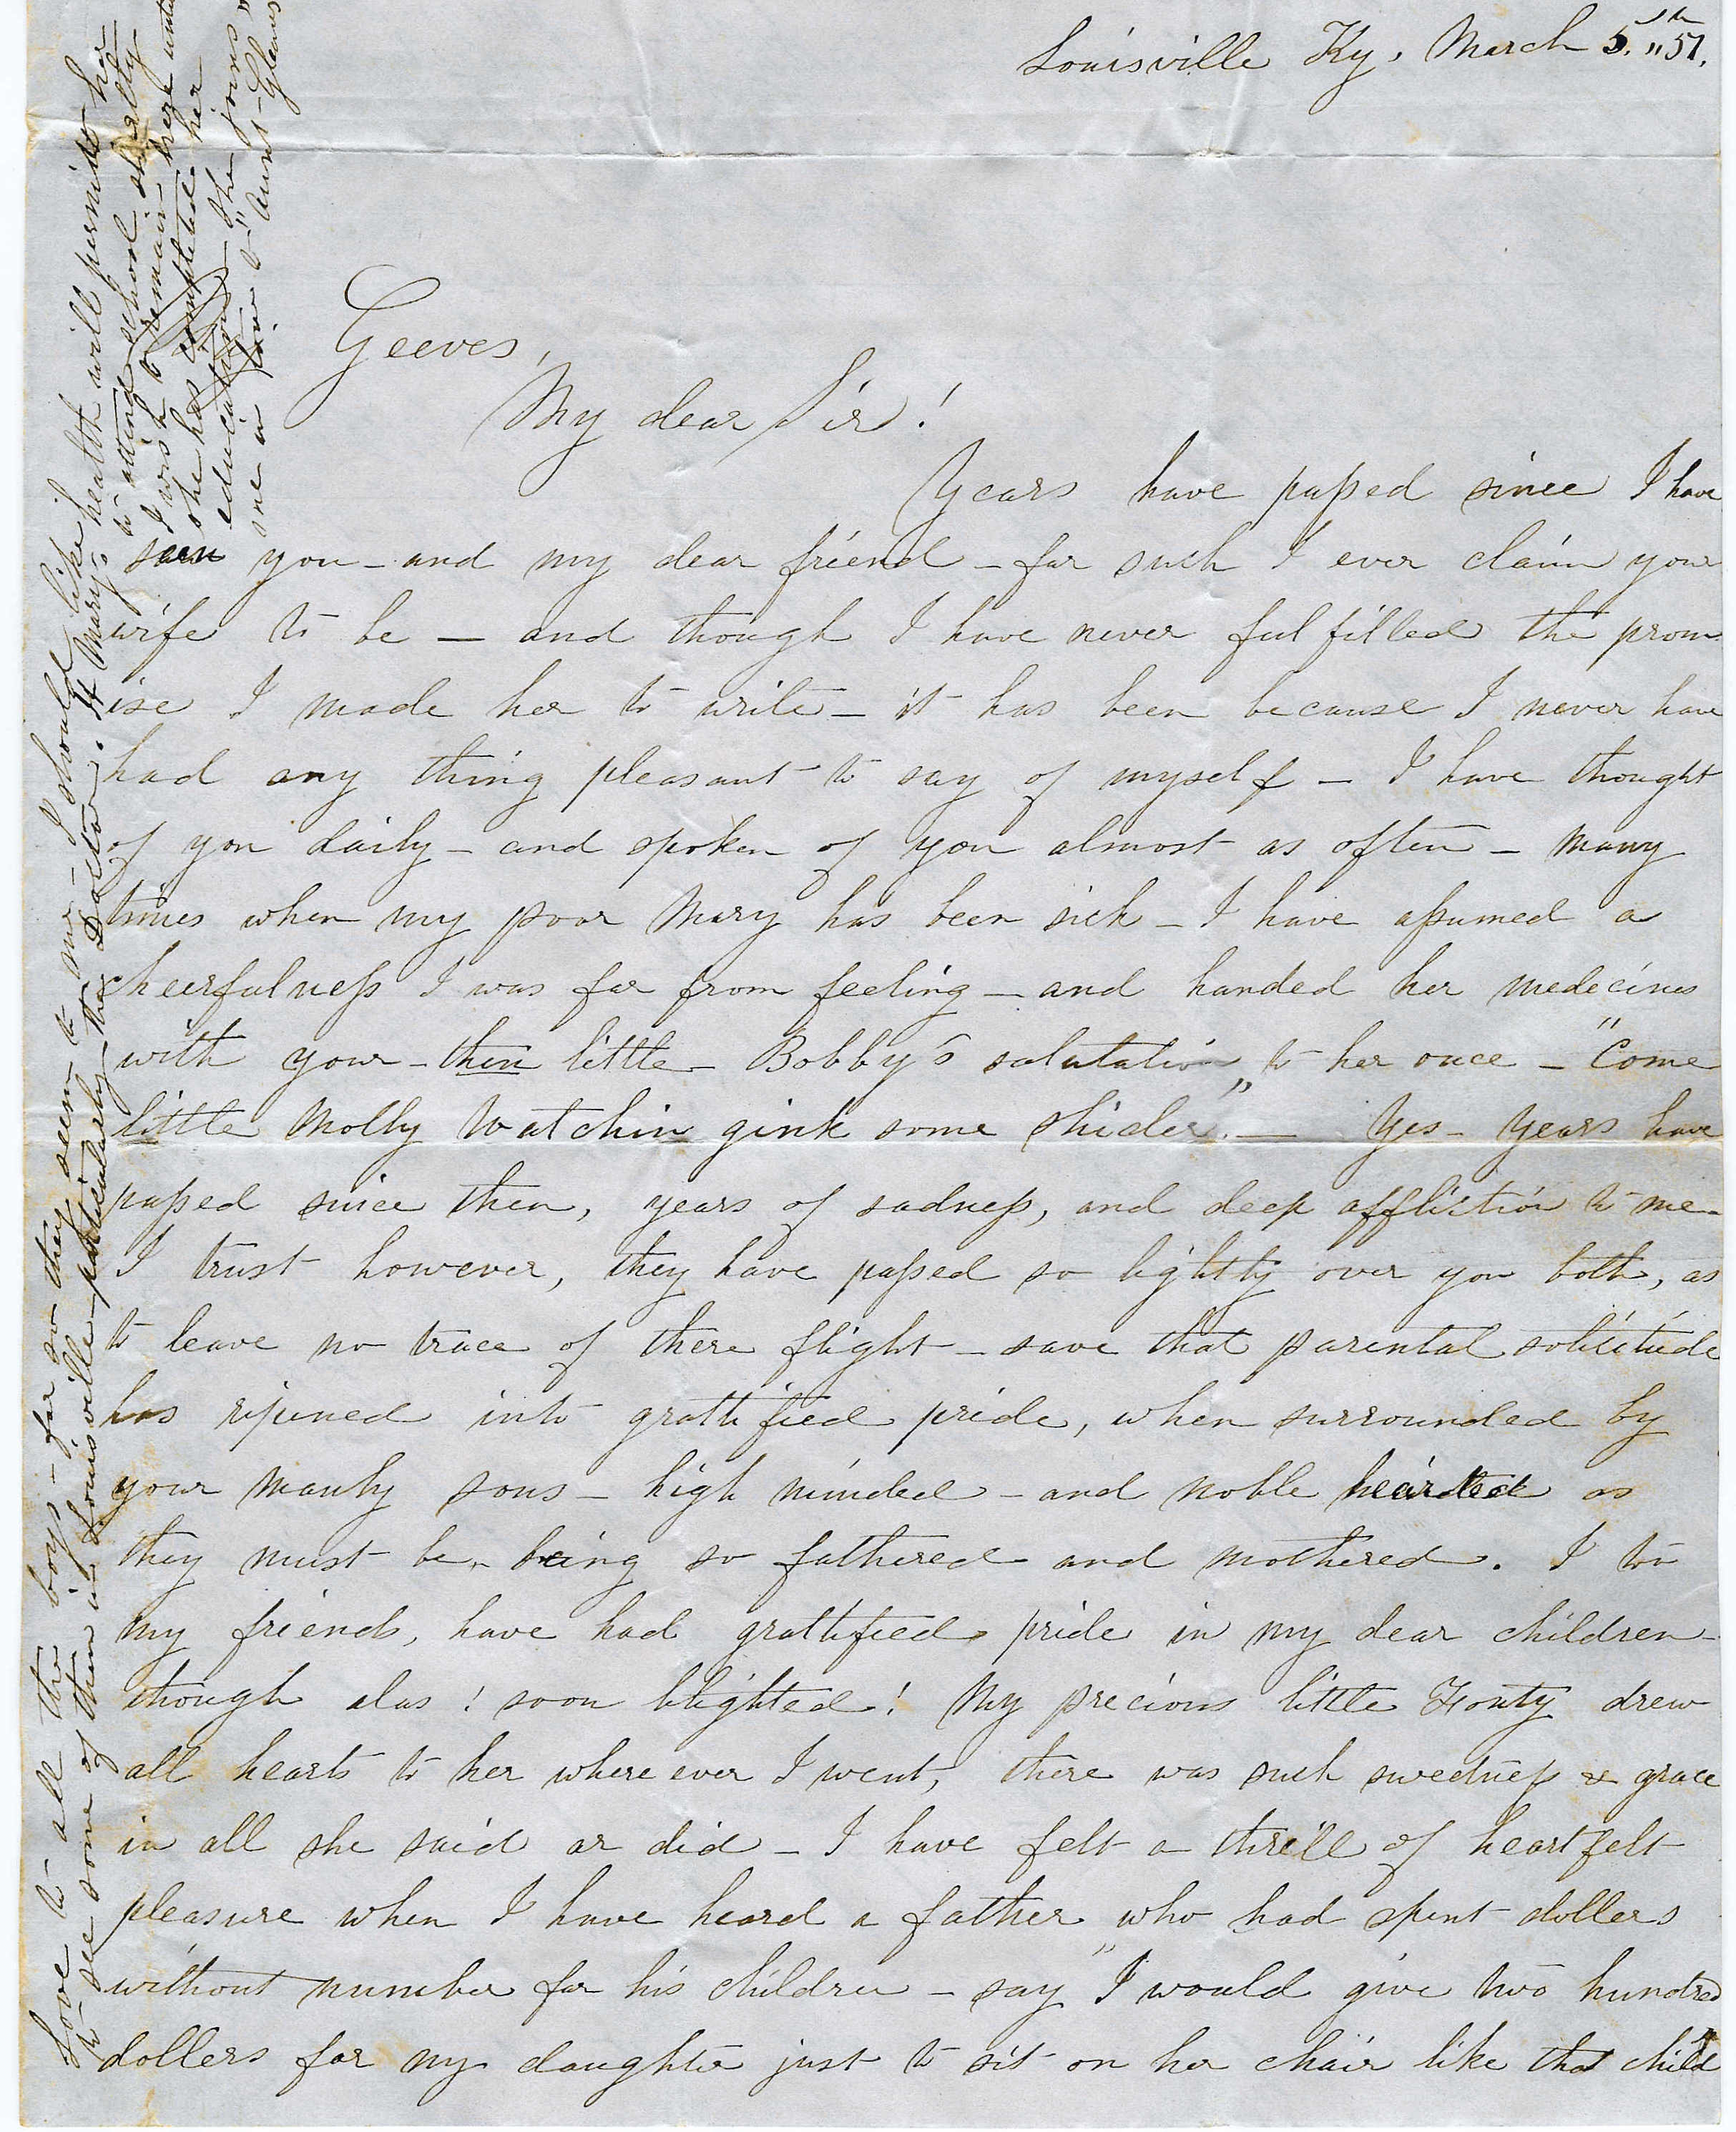 Louisville Ky, March 5.th "51.
Geeves,
My dear Sir!
Years have passed since I have
seen you - and my dear friend - for such I ever claim your
wife to be — and though I have never fulfilled the prom
ise I made her to write - it has been because I never have
had any thing pleasant to say of myself - I have thought
of you daily - and spoken of you almost as often - many
times when my poor Mary has been sick - I have assumed a
cheerfulness I was far from feeling - and handed her medecines
with your - then little - Bobby's salutation, to her once - "Come
little Molly Watchin gink some shider". — Yes - years have
passed since then, years of sadness, and deep affliction to me -
I trust however, they have passed so lightly over you both, as
to leave no trace of there flight - save that parental solicitude
has ripened into gratified pride, when surrounded by
your manly sons - high minded - and noble hearted as
they must be - being so fathered and mothered. I too
my friends, have had gratified pride in my dear children -
though alas! soon blighted! My precious little Fonty drew
all hearts to her where ever I went, there was such sweetness & grace
in all she said or did - I have felt a thrill of heartfelt
pleasure when I have heard a father who had spent dollers
without number for his children - say "I would give two hundred
dollers for my daughter just to sit on her chair like that child
Love to all the boys - for so they seem to me - I should like
to see some of them in Louisville - particularly the Doctor. If Mary's health will permit her
to attend school shortly
I wish to remain here until
she has completed her
education - She joins
me in love to "Aunt